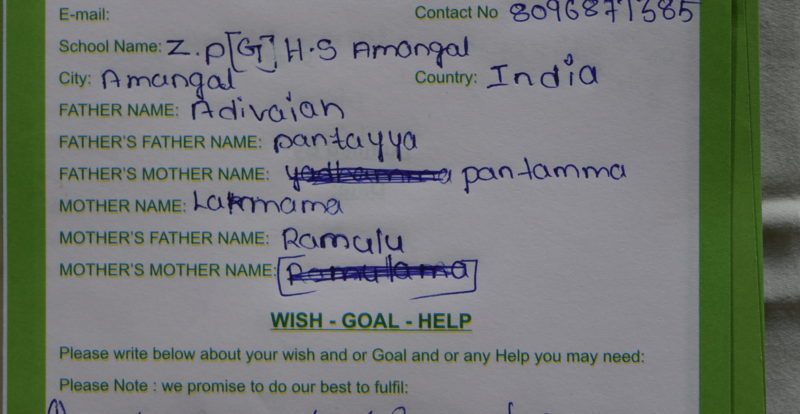 E-mail: Contact No 8096871385
School Name: Z.P[G] H.S Amangal
City: Amangal Country: India
FATHER NAME: Adivaiah
FATHER'S FATHER NAME: pantayya
FATHER'S MOTHER NAME: pantamma
MOTHER NAME: Lakmama
MOTHER'S FATHER NAME: Ramulu
MOTHER'S MOTHER NAME: Ramulama
WISH - GOAL - HELP
Please write below about your wish and or Goal and or any Help you may need:
Please Note : we promise to do our best to fulfil: